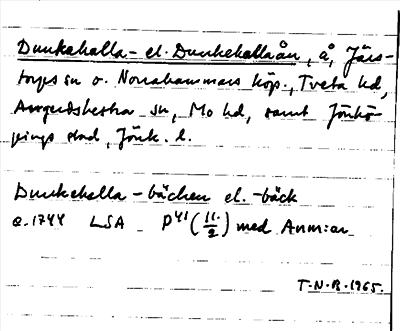 Dunkahalla- el. Dunkehallaån, å, Järs-
torps sn o. Norrahammars köp., Tveta hd,
Angerdshestra sn, Mo hd, samt Jönkö-
pings stad, Jönk. l.
Dunkehalla-bäcken el. -bäck
c. 1744 LSA P41 (11/2) med Anm:ar
T.N.B. 1965.